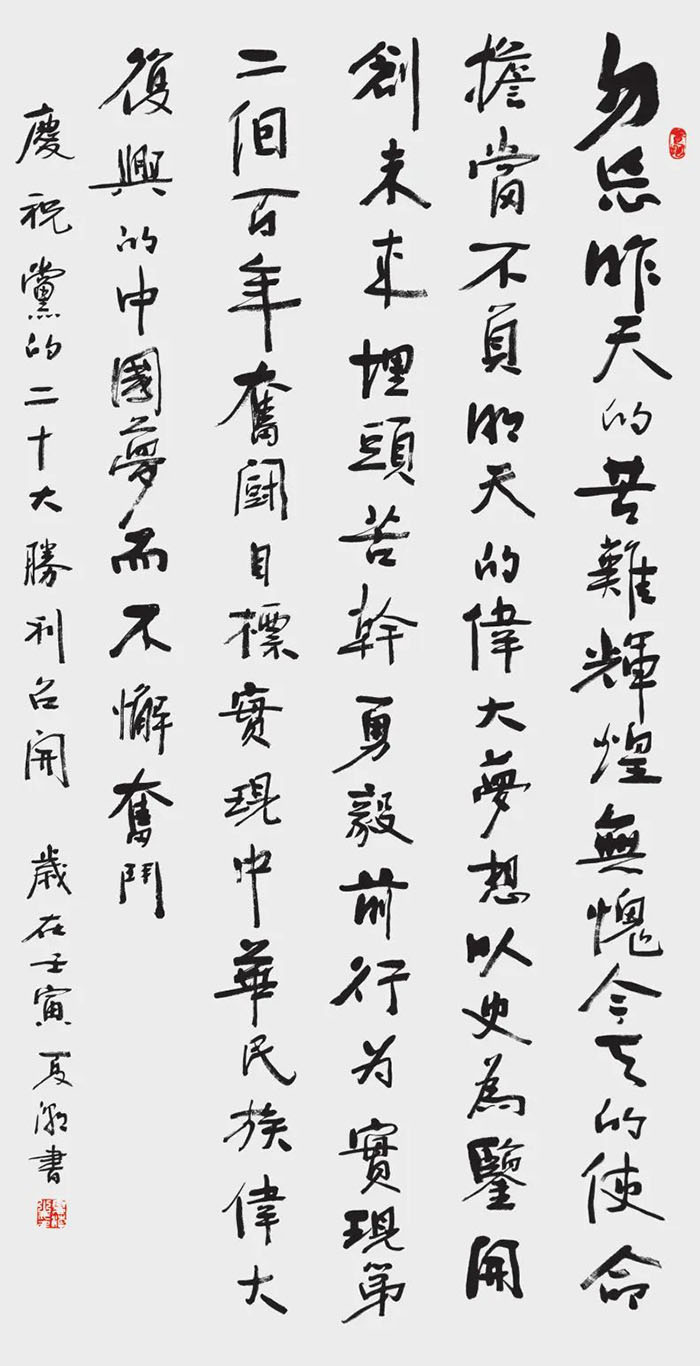 勿忘昨天的苦難輝煌無愧今天的使命
擔當不負明天的偉大夢想以史為鑒開
創未来埋頭苦幹勇毅前行为實現第
二個百年奮鬪目標實現中華民族偉大
復興的中國夢而不懈奮鬥
慶祝黨的二十大勝利召開 歲在壬寅夏潮書